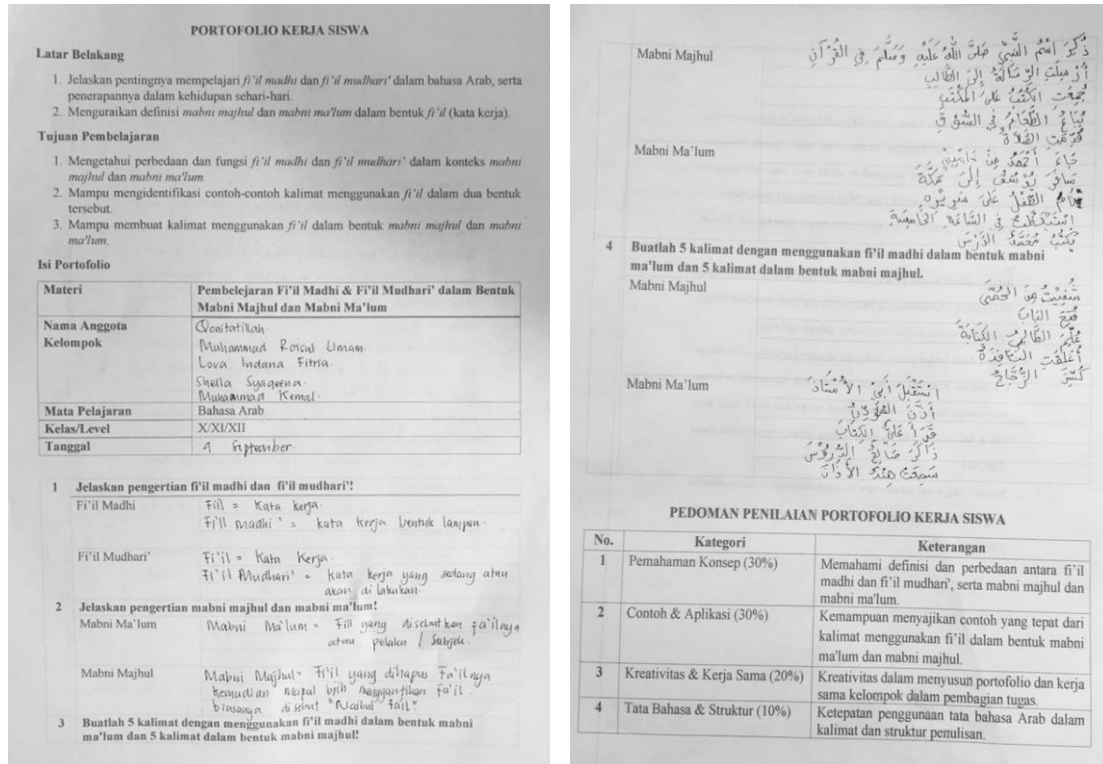 PORTOFOLIO KERJA SISWA
Latar Belakang
1. Jelaskan pentingnya mempelajari fi'il madhi dan fi'il mudhari' dalam bahasa Arab, serta
penerapannya dalam kehidupan sehari-hari.
2. Menguraikan definisi mabni majhul dan mabni ma'lum dalam bentuk fi'il (kata kerja).
Tujuan Pembelajaran
1. Mengetahui perbedaan dan fungsi fi'il madhi dan fi'il mudhari' dalam konteks mabni
majhul dan mabni ma'lum.
2. Mampu mengidentifikasi contoh-contoh kalimat menggunakan fi'il dalam dua bentuk
tersebut.
3. Mampu membuat kalimat menggunakan fi'il dalam bentuk mabni majhul dan mabni
ma'lum.
Isi Portofolio
Materi Pembelejaran Fi'il Madhi & Fi'il Mudhari' dalam Bentuk
Mabni Majhul dan Mabni Ma'lum
Nama Anggota Qonitatillah.
Kelompok Muhammad Roicul Umam.
Lova Indana Fitria.
Sheila Syaqeena.
Muhammad Kemal.
Mata Pelajaran Bahasa Arab
Kelas/Level X/XI/XII
Tanggal September
1 Jelaskan pengertian fi'il madhi dan fi'il mudhari'!
Fi'il Madhi Fiil = Kata kerja.
Fi'il madhi' = kata kerja bentuk lampau.
Fi'il Mudhari' Fi'il = Kata Kerja.
Fi'il Mudhari' = kata kerja yang sedang atau
akan di lakukan.
2 Jelaskan pengertian mabni majhul dan mabni ma'lum!
Mabni Ma'lum Mabni Ma'lum = Fiil yang disebutkan fa'ilnya
atau pelaku / Subjek.
Mabni Majhul Mabni Majhul = Fi'il yang dihapus Fa'ilnya
kemudian menggantikan fa'il.
biasanya disebut "Naibul fail"
3 Buatlah 5 kalimat dengan menggunakan fi'il madhi dalam bentuk mabni
ma'lum dan 5 kalimat dalam bentuk mabni majhul!
Mabni Majhul ذُكِرَ اسْمُ النَّبِيِّ صَلَّى اللهُ عَلَيْهِ وَسَلَّمَ فِي القُرْآنِ
أُرْسِلَتِ الرِّسَالَةُ إِلَى الطَّالِبِ
جُمِعَتِ الكُتُبُ عَلَى المَكْتَبِ
يُبَاعُ الطَّعَامُ فِي السُّوْقِ
الصَّلَاةُ
Mabni Ma'lum جَاءَ أَحْمَدُ مِنْ
سَافَرَ يُوْسُفُ إِلَى مَكَّةَ
نَامَ الطِّفْلُ عَلَى سَرِيْرِهِ
فِي السَّاعَةِ الخَامِسَةِ
يَكْتُبُ مُحَمَّدٌ الدَّرْسَ
4 Buatlah 5 kalimat dengan menggunakan fi'il madhi dalam bentuk mabni
ma'lum dan 5 kalimat dalam bentuk mabni majhul.
Mabni Majhul شُفِيْتُ مِنَ الحُمَّى
فُتِحَ البَابُ
عُلِّمَ الطَّالِبُ الكِتَابَةَ
أُغْلِقَتِ النَّافِذَةُ
كُسِرَ الزُّجَاجُ
Mabni Ma'lum اسْتَقْبَلَ أَبِيْ الأُسْتَاذَ
أَذَّنَ المُؤَذِّنُ
قَرَأَ عَلِيٌّ الكِتَابَ
ذَاكَرَ صَالِحٌ الدُّرُوْسَ
سَمِعَتْ هِنْدٌ الأَذَانَ
PEDOMAN PENILAIAN PORTOFOLIO KERJA SISWA
No. Kategori Keterangan
1 Pemahaman Konsep (30%) Memahami definisi dan perbedaan antara fi'il
madhi dan fi'il mudhari', serta mabni majhul dan
mabni ma'lum.
2 Contoh & Aplikasi (30%) Kemampuan menyajikan contoh yang tepat dari
kalimat menggunakan fi'il dalam bentuk mabni
ma'lum dan mabni majhul.
3 Kreativitas & Kerja Sama (20%) Kreativitas dalam menyusun portofolio dan kerja
sama kelompok dalam pembagian tugas.
4 Tata Bahasa & Struktur (10%) Ketepatan penggunaan tata bahasa Arab dalam
kalimat dan struktur penulisan.